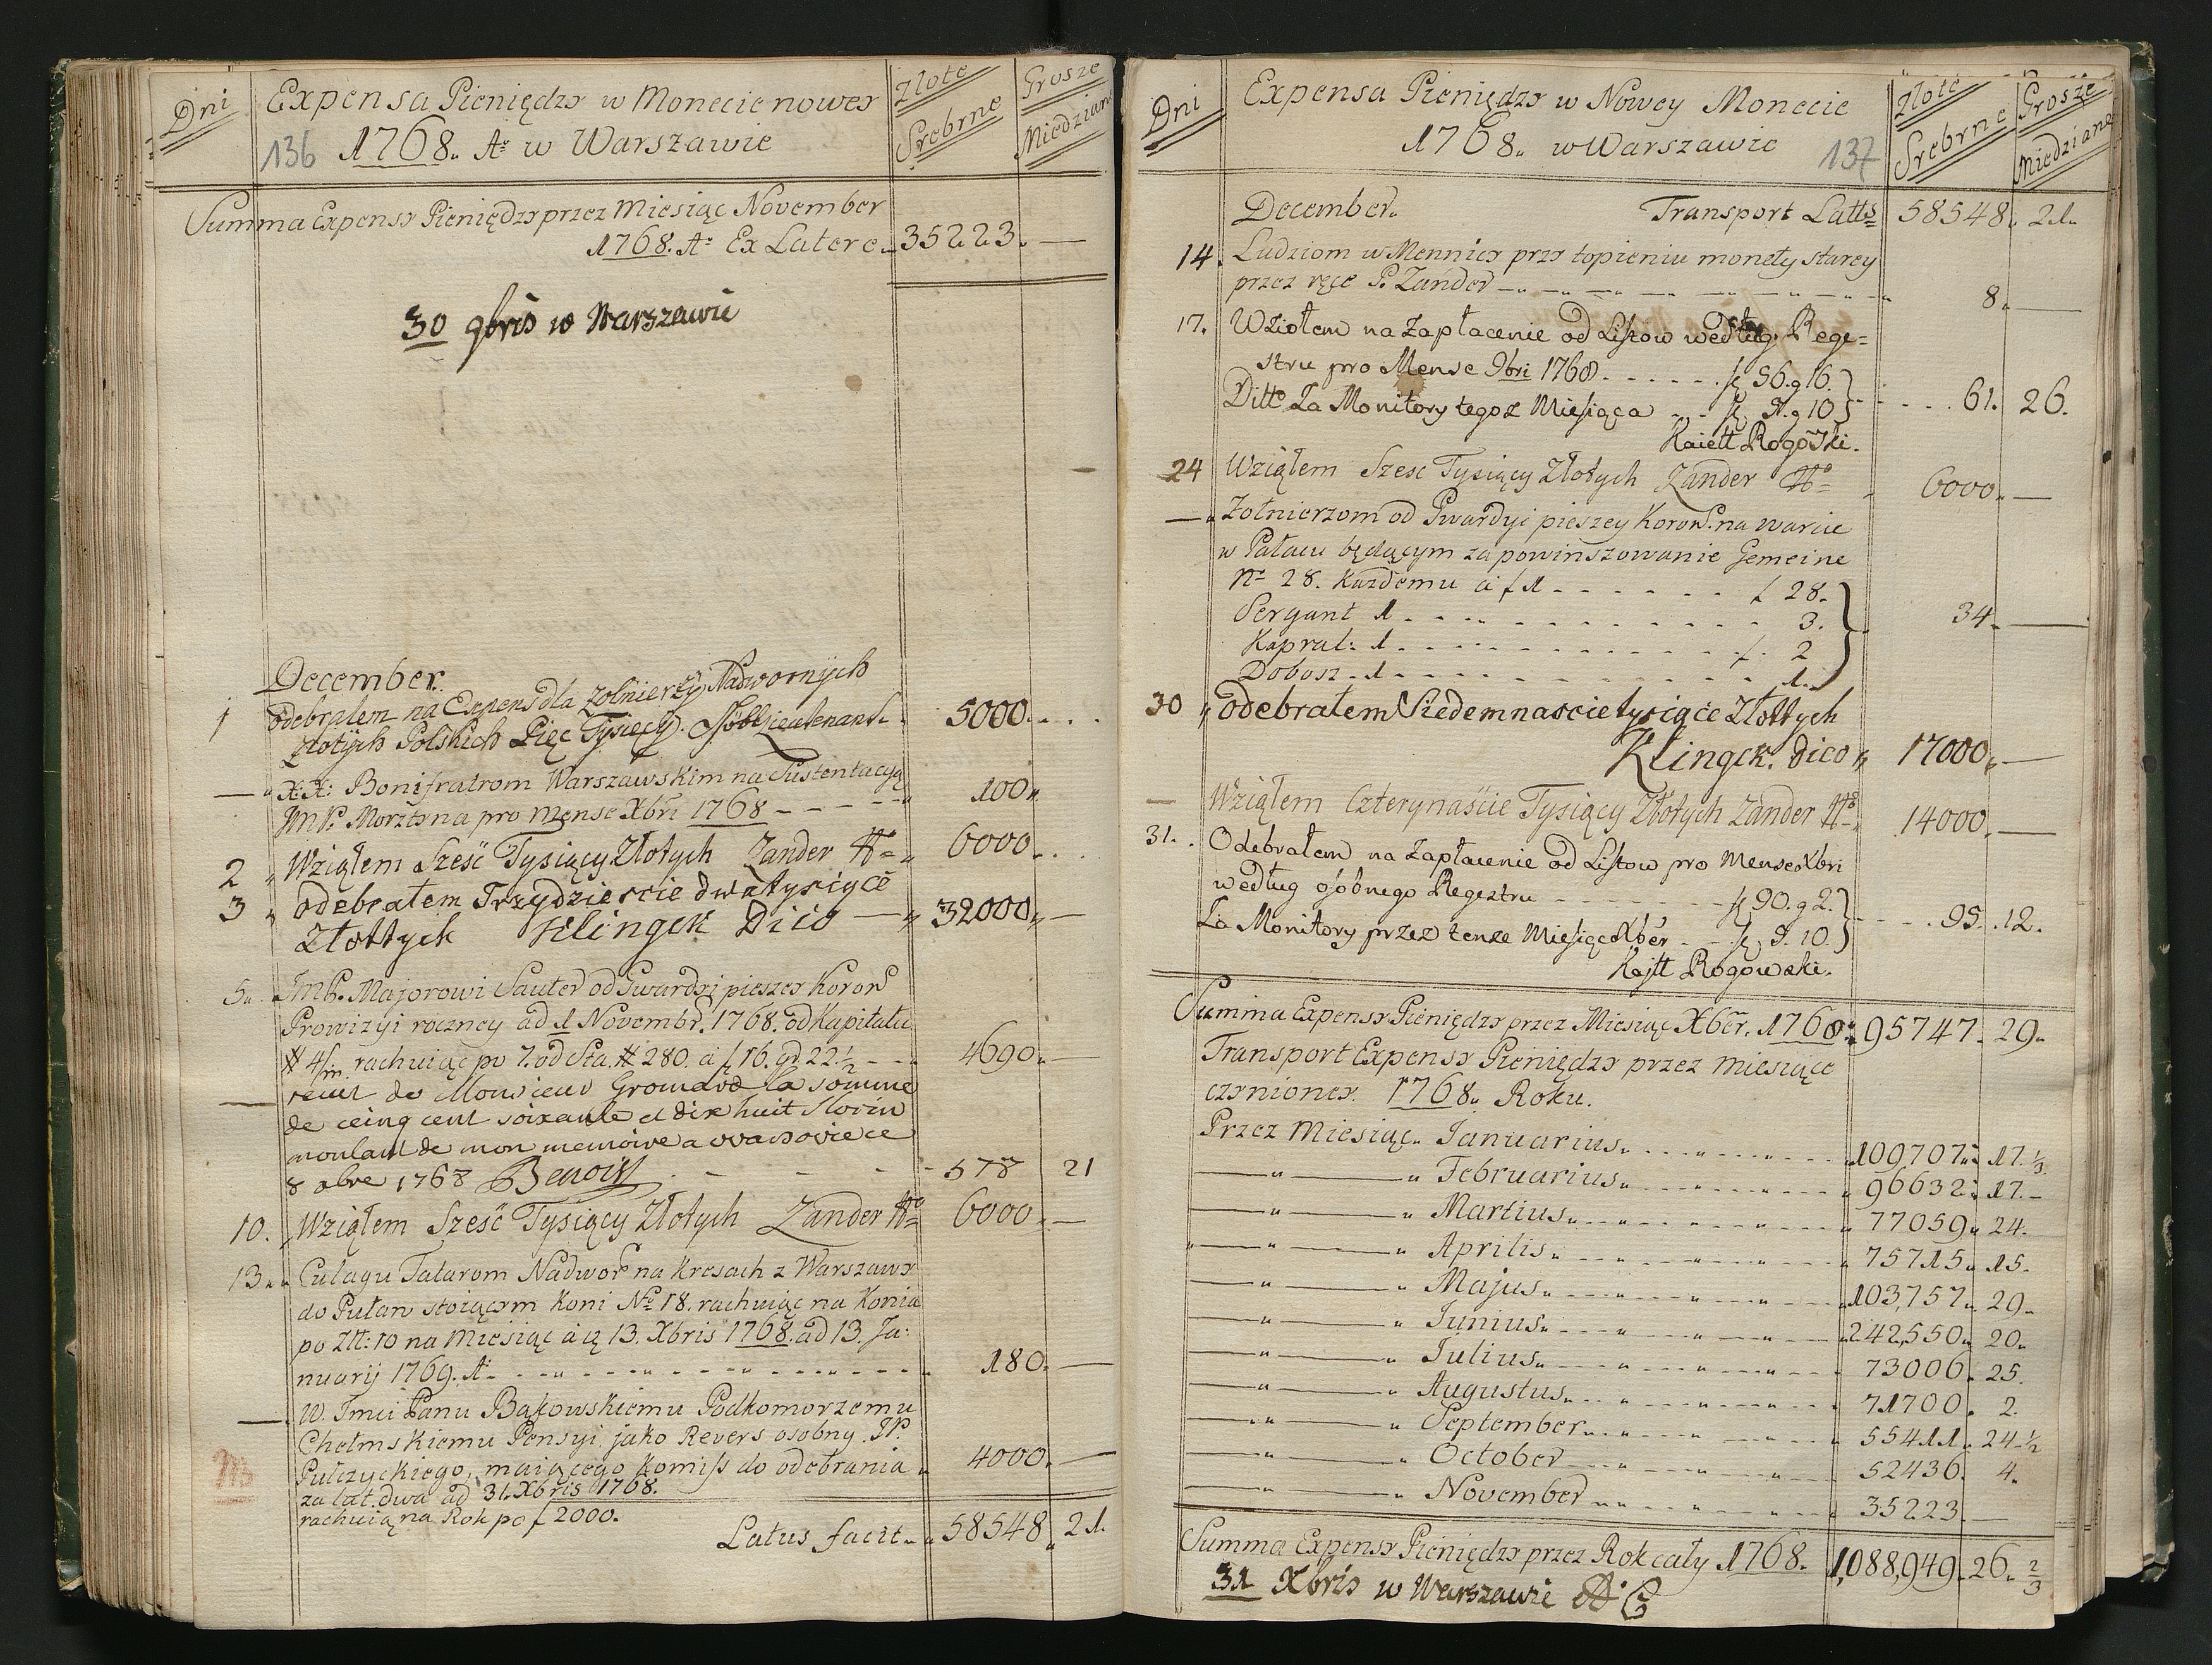 Dni Expensa Pieniędzy w Monecie nowey Złote Srebrne Grosze Miedziane
136 1768. Aº w Warszawie
Summa Expensy Pieniędzy przez Miesiąc November
1768. Aº Ex Latere 35223. —
30 9bris w Warszawie
December.
1 odebrałem na Expens dla Zołnierzy Nadwornych
złotych Polskich Pięc Tysięcy. 5000
— X.X. Bonifratrom Warszawskim na Sustentacyą
JmP. Morztyna pro Mense Xbri 1768 - - - 100
2 Wziąłem Sześć Tysiący Złotych Zander 6000
3 odebrałem Trzydziescie dwatysiące
Złottych Klingck Dico — 32000 —
5. JmP. Majorowi Sauter od Gwardyi pieszey Koron
Prowizyi roczney ad 1 Novembr. 1768. od Kapitału
# 4/m. rachuiąc po 7. od Sta. # 280. à f 16. gr 22 1/2 - - 4690. —
— recut de Monsieur Gromard la somme
de ceinq cent soixante et dix huit florin
montant de mon memoire a warsovie ce
8 xbre 1768 Benoist - - - 578 21
10. Wziąłem Sześć Tysiący Złotych Zander 6000. —
13. Cułagu Tatarom Nadwor na Kresach z Warszawy
do Puław stoiącym Koni Nº 18. rachuiąc na Konia
po Złł: 10 na Miesiąc à 13. Xbris 1768. ad 13. Ja:
nuarij 1769. Aº - - - 180. —
— W. Jmci Panu Bąkowskiemu Podkomorzemu
Chełmskiemu Pensyi, jako Revers osobny JP.
Pułczyckiego, maiącego Komiss do odebrania 4000. —
za lat dwa ad 31. Xbris 1768.
rachuią na Rok po f 2000.
Latus facit 58548. 21.
Dni Expensa Pieniędzy w Nowey Monecie Złote Srebrne Grosze Miedziane
1768. w Warszawie 137
December. Transport Latts 58548. 21.
14. Ludziom w Mennicy przy topieniu monety starey
przez ręce P. Zander - - - 8. —
17. Wziołem na Zapłacenie od Listow według Rege=
stru pro Mense 9bri 1768 - - - 56. g 16.
Ditto Za Monitory tegoz Miesiąca - - g 10 61. 26.
Kaiett Rogowski.
24 Wziąłem Szesc Tysiący Złotych Zander 6000. —
— Zołnierzom od Gwardyi pieszey Koron. na warcie
w Pałacu będącym za powinszowanie Gemeine
Nº 28. Kazdemu à f 1 - - - f 28.
Sergant 1 - - - 3. 34. —
Kapral: 1 - - - f. 2
Dobosz. 1 - - - 1.
30 odebrałem Siedemnascie tysiące Złottych
Klingck. Dico 17000. —
— Wziąłem Czterynaście Tysiący Złotych Zander 14000. —
31. Odebrałem na Zapłacenie od Listow pro Mense Xbri
według osobnego Regestru - - - 90. g 2.
Za Monitory przez tenze Miesiąc Xber - - 5. 10. 95. 12.
Kajtt Rogowski.
Summa Expensy Pieniędzy przez Miesiąc Xber. 1768. 95747. 29.
Transport Expensy Pieniędzy przez miesiące
czynioney. 1768. Roku.
Przez Miesiąc Januarius 109707. 17. 1/3
Februarius 96632. 17. —
Martius 77059. 24.
Aprilis 75715. 15.
Majus 103,757. 29.
Junius 242,550. 20.
Julius 73006. 25.
Augustus 71700. 2.
September 55411. 24 1/2
October 52436. 4.
November 35223. —
Summa Expensy Pieniędzy przez Rok cały 1768. 1,088,949. 26. 2/3
31 Xbris w Warszawie